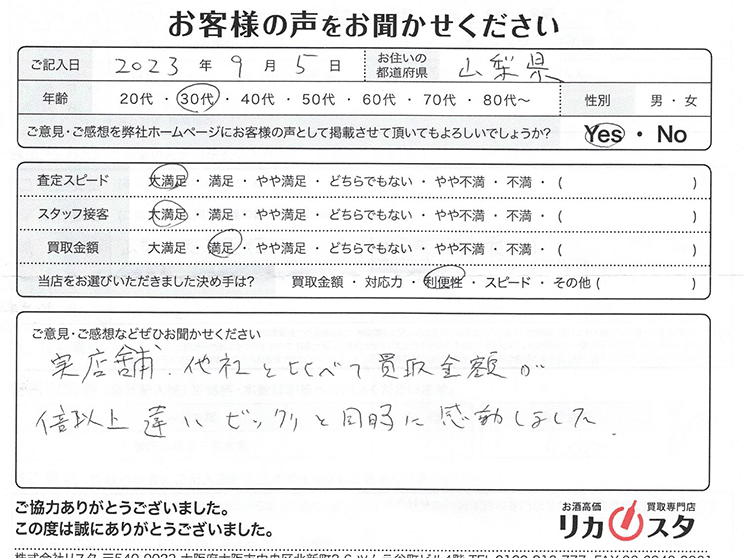 お客様の声をお聞かせください
ご記入日 2023 年 9 月 5 日 お住いの都道府県 山梨県
年齢 20代 ・ 30代 ・ 40代 ・ 50代 ・ 60代 ・ 70代 ・ 80代～ 性別 男 ・ 女
ご意見・ご感想を弊社ホームページにお客様の声として掲載させて頂いてもよろしいでしょうか? Yes ・ No
査定スピード 大満足 ・ 満足 ・ やや満足 ・ どちらでもない ・ やや不満 ・ 不満 ・ ( )
スタッフ接客 大満足 ・ 満足 ・ やや満足 ・ どちらでもない ・ やや不満 ・ 不満 ・ ( )
買取金額 大満足 ・ 満足 ・ やや満足 ・ どちらでもない ・ やや不満 ・ 不満 ・ ( )
当店をお選びいただきました決め手は? 買取金額 ・ 対応力 ・ 利便性 ・ スピード ・ その他 ( )
ご意見・ご感想などぜひお聞かせください
実店舗、他社と比べて買取金額が
倍以上違いビックリと同時に感動しました.
ご協力ありがとうございました。
この度は誠にありがとうございました。
お酒高価 買取専門店
リカスタ